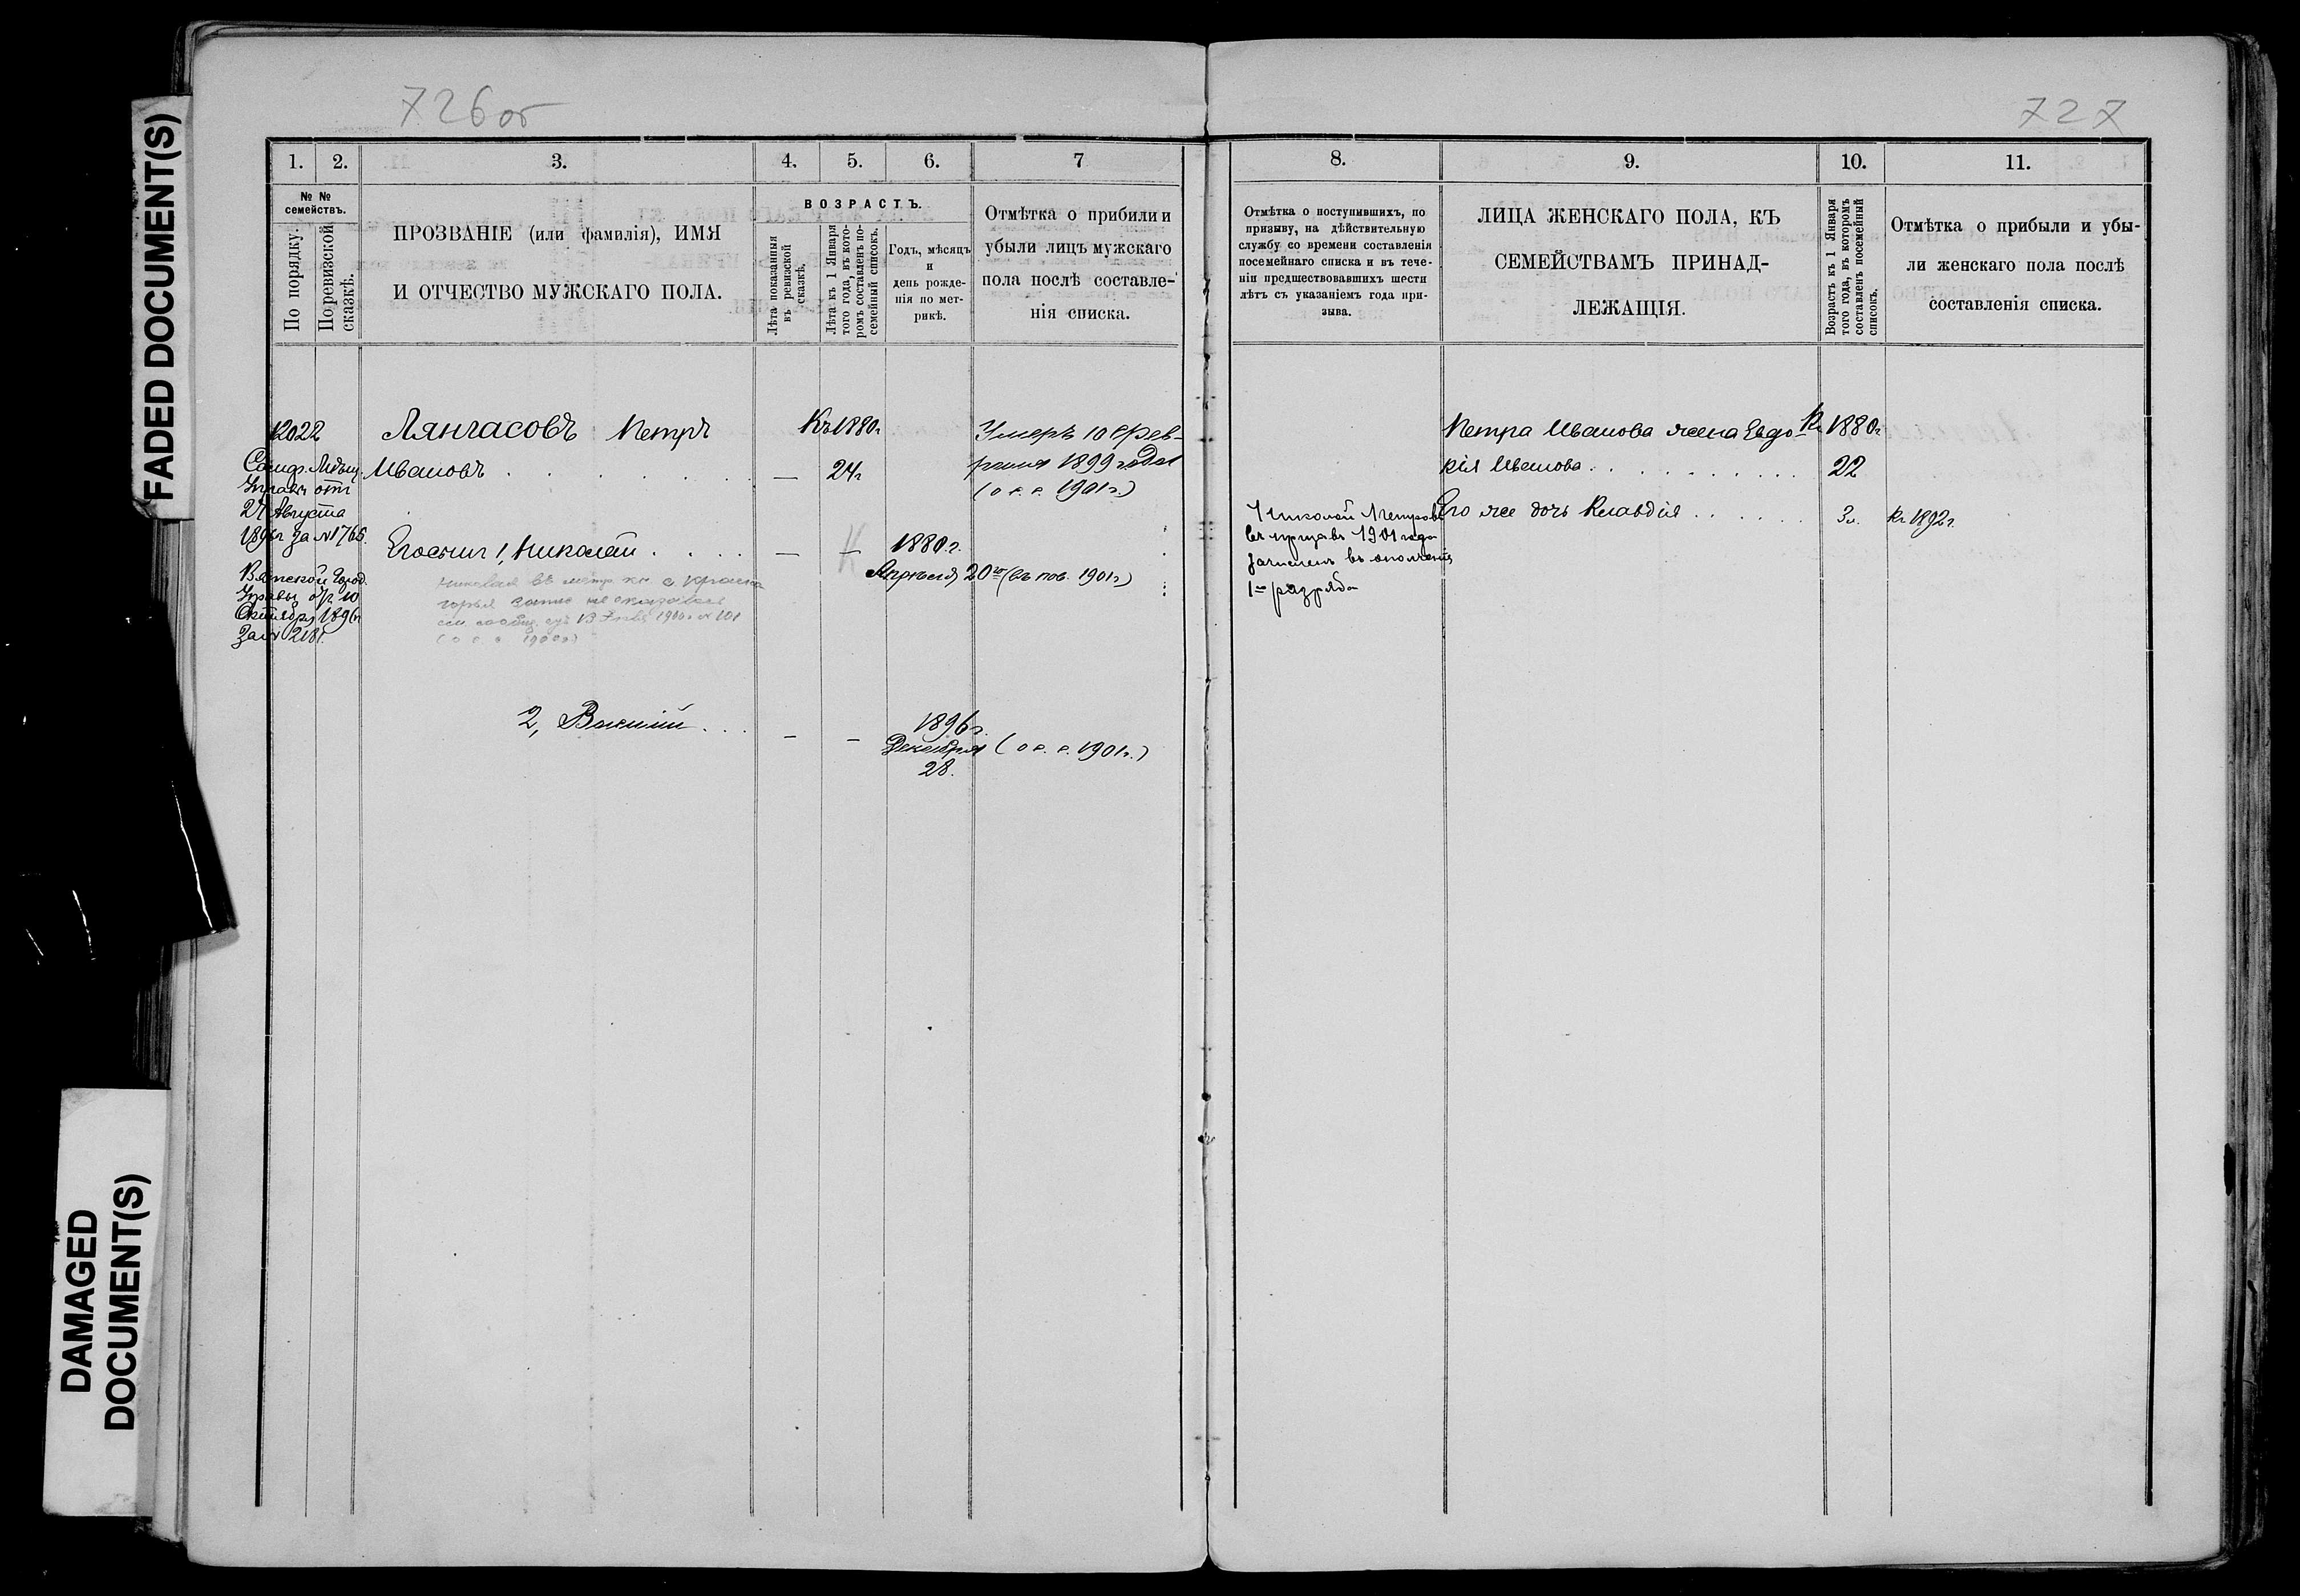 FADED DOCUMENT(S)
DAMAGED
DOCUMENT(S)
726об
1.
2.
3.
4.
5.
6.
7
№ №
семействъ.
По порядку.
По ревизской
сказкѣ.
ПРОЗВАНІЕ (или фамилія), ИМЯ
И ОТЧЕСТВО МУЖСКАГО ПОЛА.
ВОЗРАСТЪ.
Лѣта показанныя
въ ревизской
сказкѣ.
Лѣта къ 1 Января
того года, въ кото-
ромъ составленъ по-
семейный списокъ.
Годъ, мѣсяцъ
и
день рожде-
нія по мет-
рикѣ.
Отмѣтка о прибыли и
убыли лицъ мужскаго
пола послѣ составле-
нія списка.
12022
Лянгасовъ Петръ
Ивановъ
Къ 1880г
—
24г
Умеръ 10 Фев-
раля 1899 года
(о с. с. 1901г.)
Управы отъ
27 Августа
189 г за №1765.
Вятской Город.
Управы отъ 10
Октября 1896г
за № 2181.
Его сыны 1, Николай
—
—
1880г.
Апрѣля 20го (въ пов. 1901г.)
Николая въ метр. кн. с. Красно
горья запис не оказалось
1900г № 101
(о с. с. 1900г)
2, Василій
—
—
1896г.
Декабря (о с. с. 1901г.)
28.
727
8.
9.
10.
11.
Отмѣтка о поступившихъ, по
призыву, на дѣйствительную
службу со времени составленія
посемейнаго списка и въ тече-
ніи предшествовавшихъ шести
лѣтъ съ указаніемъ года при-
зыва.
ЛИЦА ЖЕНСКАГО ПОЛА, КЪ
СЕМЕЙСТВАМЪ ПРИНАД-
ЛЕЖАЩІЯ.
Возрастъ къ 1 Января
того года, въ которомъ
составленъ посемейный
списокъ.
Отмѣтка о прибыли и убы-
ли женскаго пола послѣ
составленія списка.
Петра Иванова жена Евдо-
кія Иванова
Къ 1880г
22
Николай Петровъ
въ призывъ 1901 года
зачисленъ въ ополченіе
1го разряда
Его же дочь Клавдія
3л.
Къ 1892г.